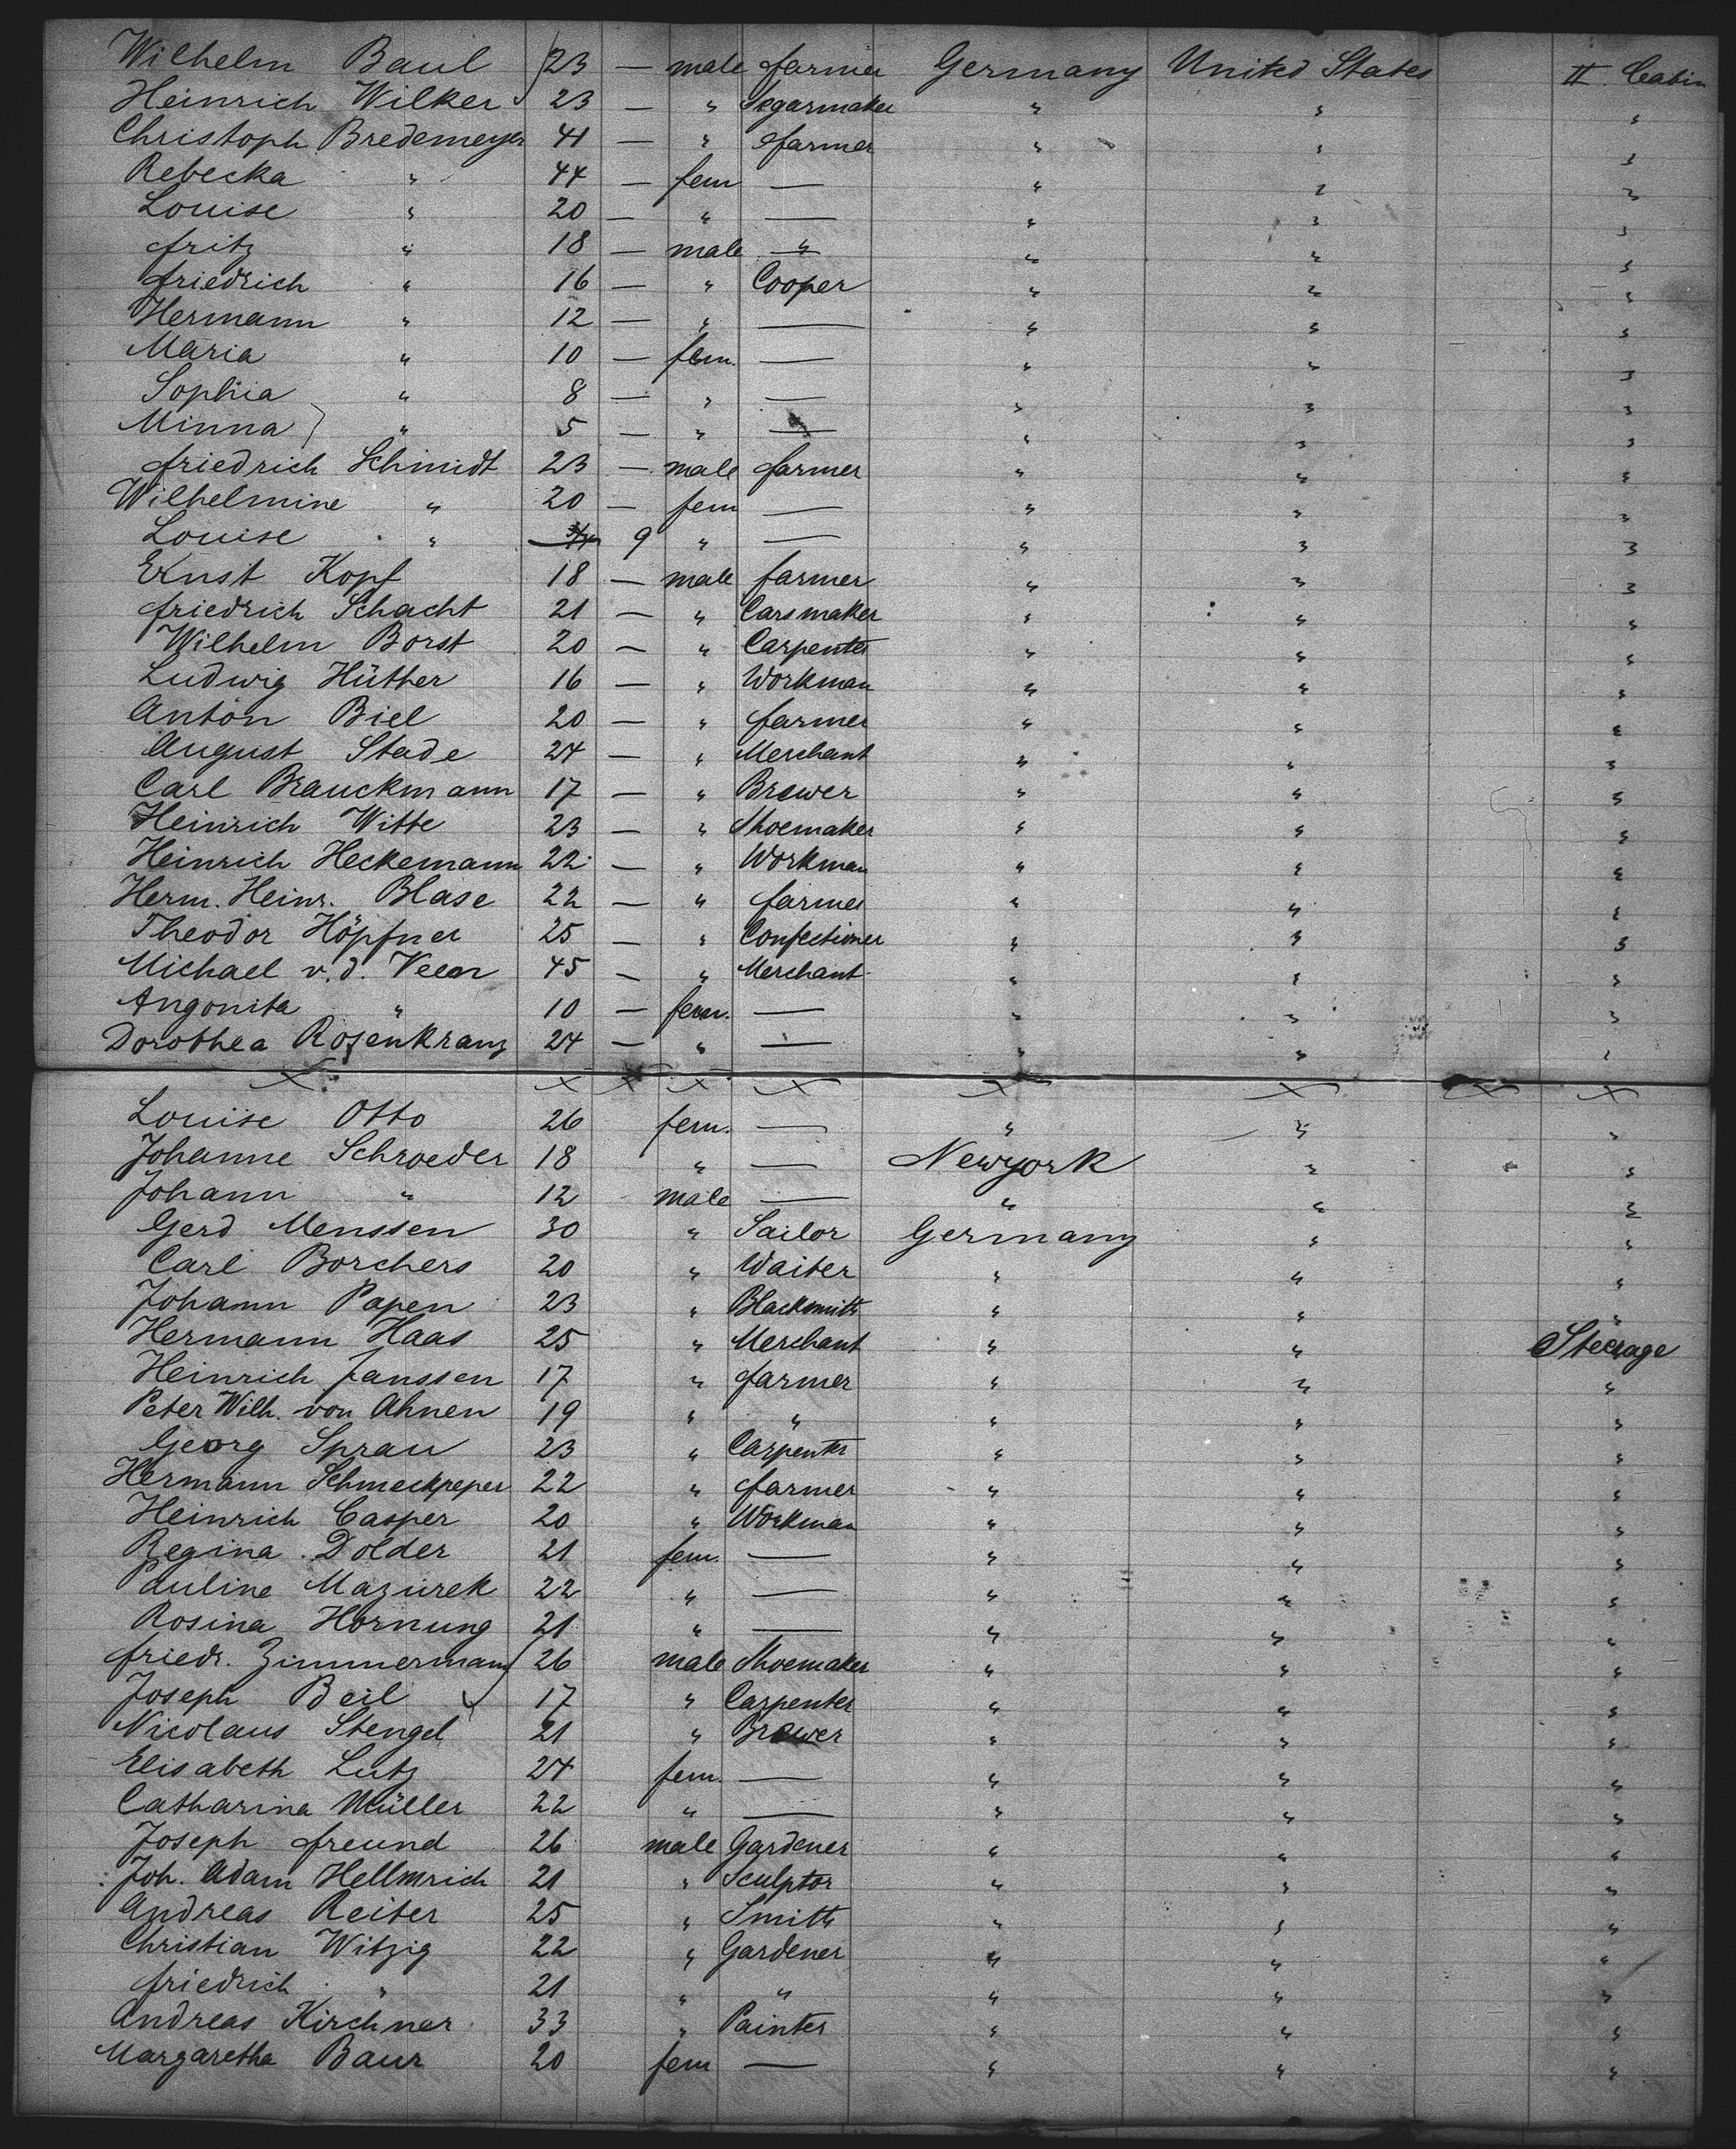 Wilhelm Baul 23 — male farmer Germany United States II. Cabin
Heinrich Wilker 23 — " Segarmaker " " "
Christoph Bredemeyer 41 — " farmer " " "
Rebecka " 44 — fem — " " "
Louise " 20 — " — " " "
Fritz " 18 — male " " " "
Friedrich " 16 — " Cooper " " "
Hermann " 12 — " — " " "
Maria " 10 — fem. — " " "
Sophia " 8 — " — " " "
Minna " 5 — " — " " "
Friedrich Schmidt 23 — male farmer " " "
Wilhelmine " 20 — fem — " " "
Louise " 3/4 9 " — " " "
Ernst Kopf 18 — male farmer " " "
Friedrich Schacht 21 — " Carsmaker " " "
Wilhelm Borst 20 — " Carpenter " " "
Ludwig Hüther 16 — " Workman " " "
Anton Biel 20 — " farmer " " "
August Stade 24 — " Merchant " " "
Carl Brauckmann 17 — " Brewer " " "
Heinrich Witte 23 — " Shoemaker " " "
Heinrich Heckemann 22 — " Workman " " "
Herm. Heinr. Blase 22 — " farmer " " "
Theodor Höpfner 25 — " Confectioner " " "
Michael v. d. Veen 45 — " Merchant " " "
Angonita " 10 — fem. — " " "
Dorothea Rosenkranz 24 — " — " " "
Louise Otto 26 fem. — " " "
Johanne Schroeder 18 " — Newyork " "
Johann " 12 male — " " "
Gerd Menssen 30 " Sailor Germany " "
Carl Borchers 20 " Waiter " " "
Johann Papen 23 " Blacksmith " " "
Hermann Haas 25 " Merchant " " Steerage
Heinrich Janssen 17 " farmer " " "
Peter Wilh. von Ahnen 19 " " " " "
Georg Sprau 23 " Carpenter " " "
Hermann Schmeckpeper 22 " farmer " " "
Heinrich Casper 20 " Workman " " "
Regina Dolder 21 fem. — " " "
Pauline Mazurek 22 " — " " "
Rosina Hornung 21 " — " " "
Friedr. Zimmermann 26 male Shoemaker " " "
Joseph Beil 17 " Carpenter " " "
Nicolaus Stengel 21 " Brewer " " "
Elisabeth Lutz 24 fem. — " " "
Catharina Müller 22 " — " " "
Joseph Freund 26 male Gardener " " "
Joh. Adam Hellmrich 21 " Sculptor " " "
Andreas Reiter 25 " Smith " " "
Christian Witzig 22 " Gardener " " "
Friedrich " 21 " " " " "
Andreas Kirchner 33 " Painter " " "
Margaretha Baur 20 fem — " " "